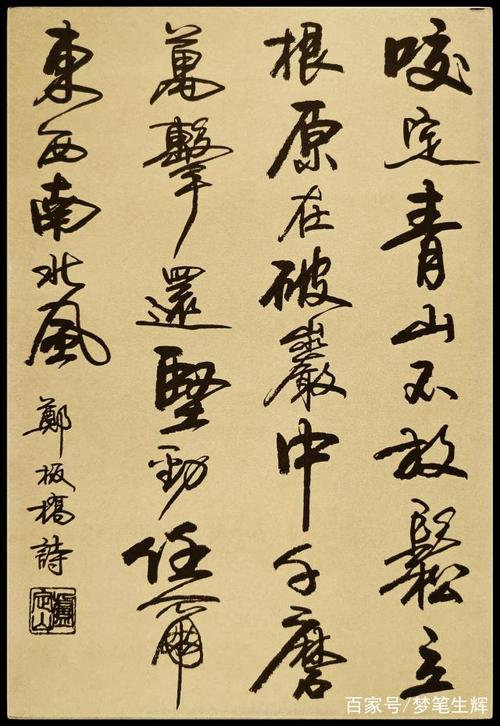 咬定青山不放鬆立
根原在破巖中千磨
萬擊還堅勁任爾
東西南北風
鄭板橋詩
盧定山
百家号/梦笔生辉